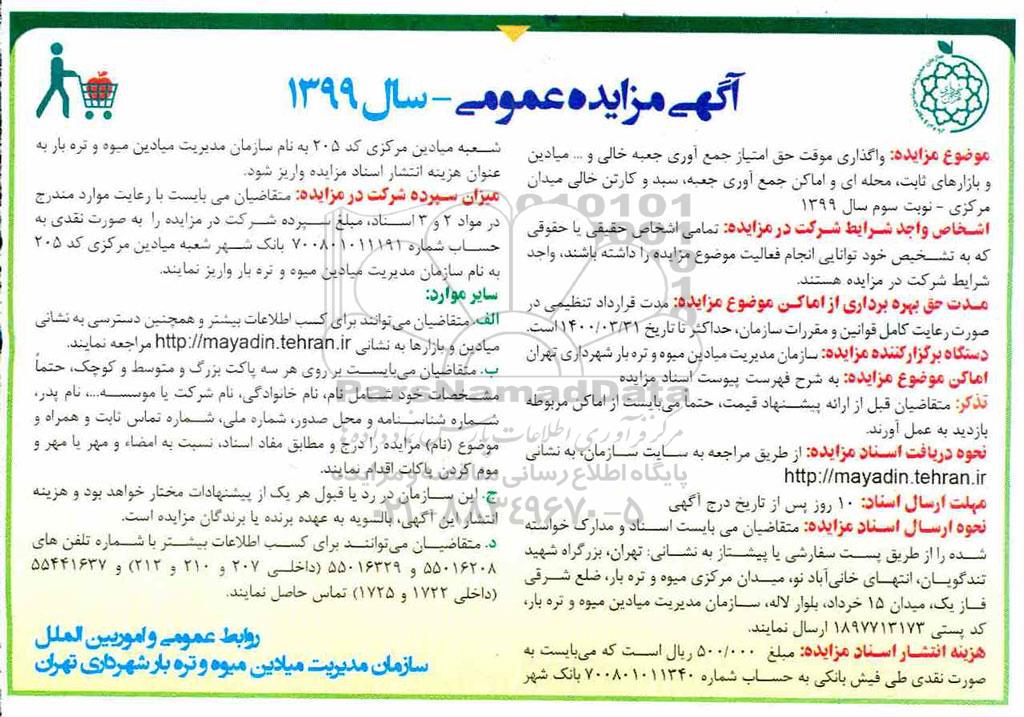 آگهی مزایده عمومی - سال ۱۳۹۹
موضوع مزایده: واگذاری موقت حق امتیاز جمع آوری جعبه خالی و ... میادین
و بازارهای ثابت، محله ای و اماکن جمع آوری جعبه، سبد و کارتن خالی میدان
مرکزی - نوبت سوم سال ۱۳۹۹
اشخاص واجد شرایط شرکت در مزایده: تمامی اشخاص حقیقی یا حقوقی
که به تشخیص خود توانایی انجام فعالیت موضوع مزایده را داشته باشند، واجد
شرایط شرکت در مزایده هستند.
مدت حق بهره برداری از اماکن موضوع مزایده: مدت قرارداد تنظیمی در
صورت رعایت کامل قوانین و مقررات سازمان، حداکثر تا تاریخ ۱۴۰۰/۰۳/۳۱ است.
دستگاه برگزارکننده مزایده: سازمان مدیریت میادین میوه و تره بار شهرداری تهران
اماکن موضوع مزایده: به شرح فهرست پیوست اسناد مزایده
تذکر: متقاضیان قبل از ارائه پیشنهاد قیمت، حتماً می‌بایست از اماکن مربوطه
بازدید به عمل آورند.
نحوه دریافت اسناد مزایده: از طریق مراجعه به سایت سازمان، به نشانی
http://mayadin.tehran.ir
مهلت ارسال اسناد: ۱۰ روز پس از تاریخ درج آگهی
نحوه ارسال اسناد مزایده: متقاضیان می بایست اسناد و مدارک خواسته
شده را از طریق پست سفارشی یا پیشتاز به نشانی: تهران، بزرگراه شهید
تندگویان، انتهای خانی‌آباد نو، میدان مرکزی میوه و تره بار، ضلع شرقی
فاز یک، میدان ۱۵ خرداد، بلوار لاله، سازمان مدیریت میادین میوه و تره بار،
کد پستی ۱۸۹۷۷۱۳۱۷۳ ارسال نمایند.
هزینه انتشار اسناد مزایده: مبلغ ۵۰۰/۰۰۰ ریال است که می‌بایست به
صورت نقدی طی فیش بانکی به حساب شماره ۷۰۰۸۰۱۰۱۱۳۴۰ بانک شهر
شعبه میادین مرکزی کد ۲۰۵ به نام سازمان مدیریت میادین میوه و تره بار به
عنوان هزینه انتشار اسناد مزایده واریز شود.
میزان سپرده شرکت در مزایده: متقاضیان می بایست با رعایت موارد مندرج
در مواد ۲ و ۳ اسناد، مبلغ سپرده شرکت در مزایده را به صورت نقدی به
حساب شماره ۷۰۰۸۰۱۰۱۱۱۹۱ بانک شهر شعبه میادین مرکزی کد ۲۰۵
به نام سازمان مدیریت میادین میوه و تره بار واریز نمایند.
سایر موارد:
الف. متقاضیان می‌توانند برای کسب اطلاعات بیشتر و همچنین دسترسی به نشانی
میادین و بازارها به نشانی http://mayadin.tehran.ir مراجعه نمایند.
ب. متقاضیان می‌بایست بر روی هر سه پاکت بزرگ و متوسط و کوچک، حتماً
مشخصات خود شامل نام، نام خانوادگی، نام شرکت یا موسسه...، نام پدر،
شماره شناسنامه و محل صدور، شماره ملی، شماره تماس ثابت و همراه و
موضوع (نام) مزایده را درج و مطابق مفاد اسناد، نسبت به امضاء و مهر یا مهر و
موم کردن پاکات اقدام نمایند.
ج. این سازمان در رد یا قبول هر یک از پیشنهادات مختار خواهد بود و هزینه
انتشار این آگهی، بالسویه به عهده برنده یا برندگان مزایده است.
د. متقاضیان می‌توانند برای کسب اطلاعات بیشتر با شماره تلفن های
۵۵۰۱۶۲۰۸ و ۵۵۰۱۶۳۲۹ (داخلی ۲۰۷ و ۲۱۰ و ۲۱۲) و ۵۵۴۴۱۶۳۷
(داخلی ۱۷۲۲ و ۱۷۲۵) تماس حاصل نمایند.
روابط عمومی و امور بین الملل
سازمان مدیریت میادین میوه و تره بار شهرداری تهران
ParsNamadData
پایگاه اطلاع رسانی مناقصه و مزایده
۰۲۱-۸۸۳۴۹۶۷۰-۵